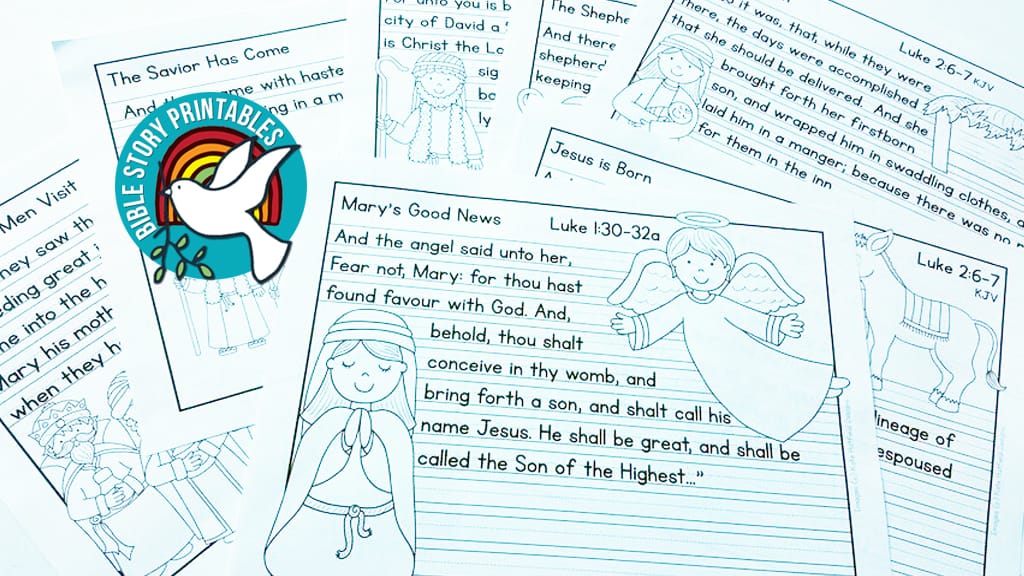 The Savior Has Come
And
me with haste
ing in a m
BIBLE STORY PRINTABLES
Men Visit
ney saw th
eding great
ne into the h
Mary his moth
when they h
unto you is b
city of David a
is Christ the Lo
sig
ly
The Shephe
And there
shepherd
keeping
it was, that, while they were
there, the days were accomplished
that she should be delivered. And she
brought forth her firstborn
son, and wrapped him in swaddling clothes, a
laid him in a manger; because there was no r
for them in the inn
Luke 2:6-7 KJV
Jesus is Born
Mary's Good News
Luke 1:30-32a
And the angel said unto her,
Fear not, Mary: for thou hast
found favour with God. And,
behold, thou shalt
conceive in thy womb, and
bring forth a son, and shalt call his
name Jesus. He shall be great, and shall be
called the Son of the Highest..."
Luke 2:6-7
KJV
lineage of
espoused